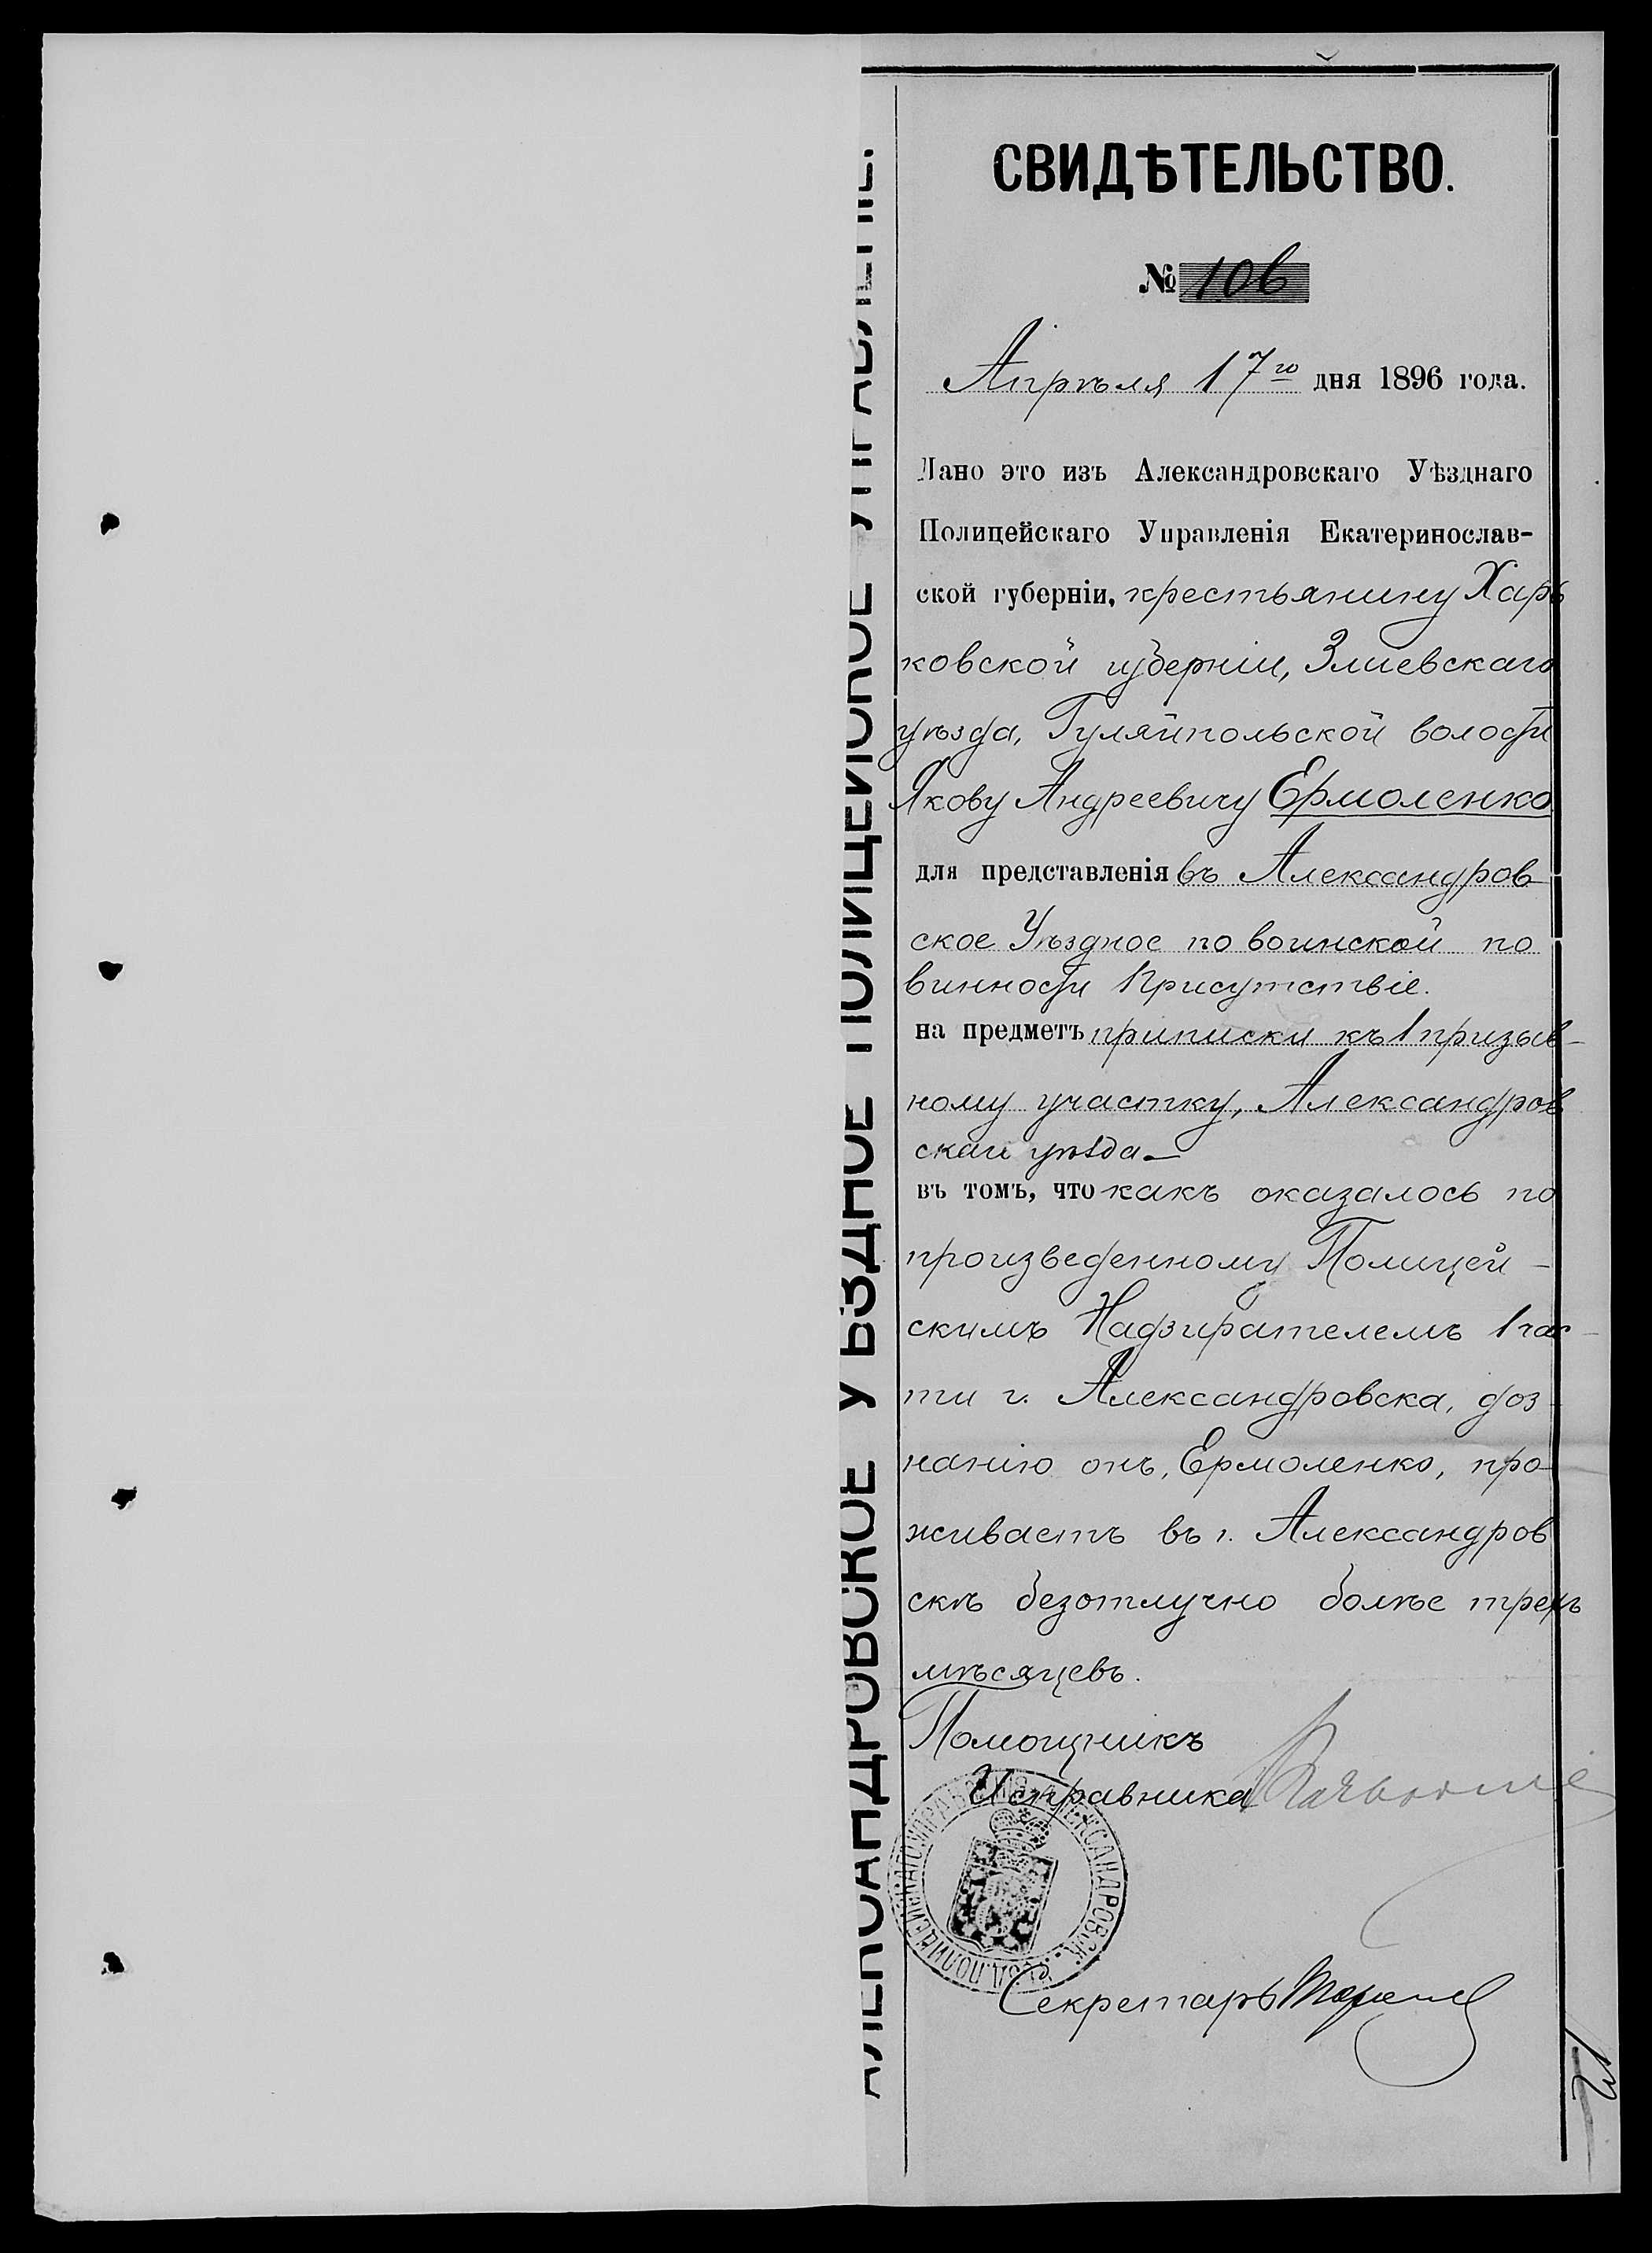 АЛЕКСАНДРОВСКОЕ УѢЗДНОЕ ПОЛИЦЕЙСКОЕ УПРАВЛЕНІЕ.
СВИДѢТЕЛЬСТВО.
№ 106
Апрѣля 17го дня 1896 года.
Дано это изъ Александровскаго Уѣзднаго
Полицейскаго Управленія Екатеринослав-
ской губерніи, крестьянину Харь
ковской губерніи, Змиевскаго
уѣзда, Гуляйпольской волости
Якову Андреевичу Ермоленко
для представленія въ Александров
ское Уѣздное по воинской по
винности Присутствіе.
на предметъ приписки къ 1 призыв-
ному участку, Александров
скаго уѣзда —
въ томъ, что какъ оказалось по
произведенному Полицей-
скимъ Надзирателемъ 1 час-
ти г. Александровска, доз
нанію онъ, Ермоленко, про-
живаетъ въ г. Александров
скѣ безотлучно болѣе трехъ
мѣсяцевъ.
Помощникъ
Исправника
АЛЕКСАНДРОВСК. УѢЗД. ПОЛИЦЕЙСКАГО УПРАВЛЕНІЯ
Секретарь
12